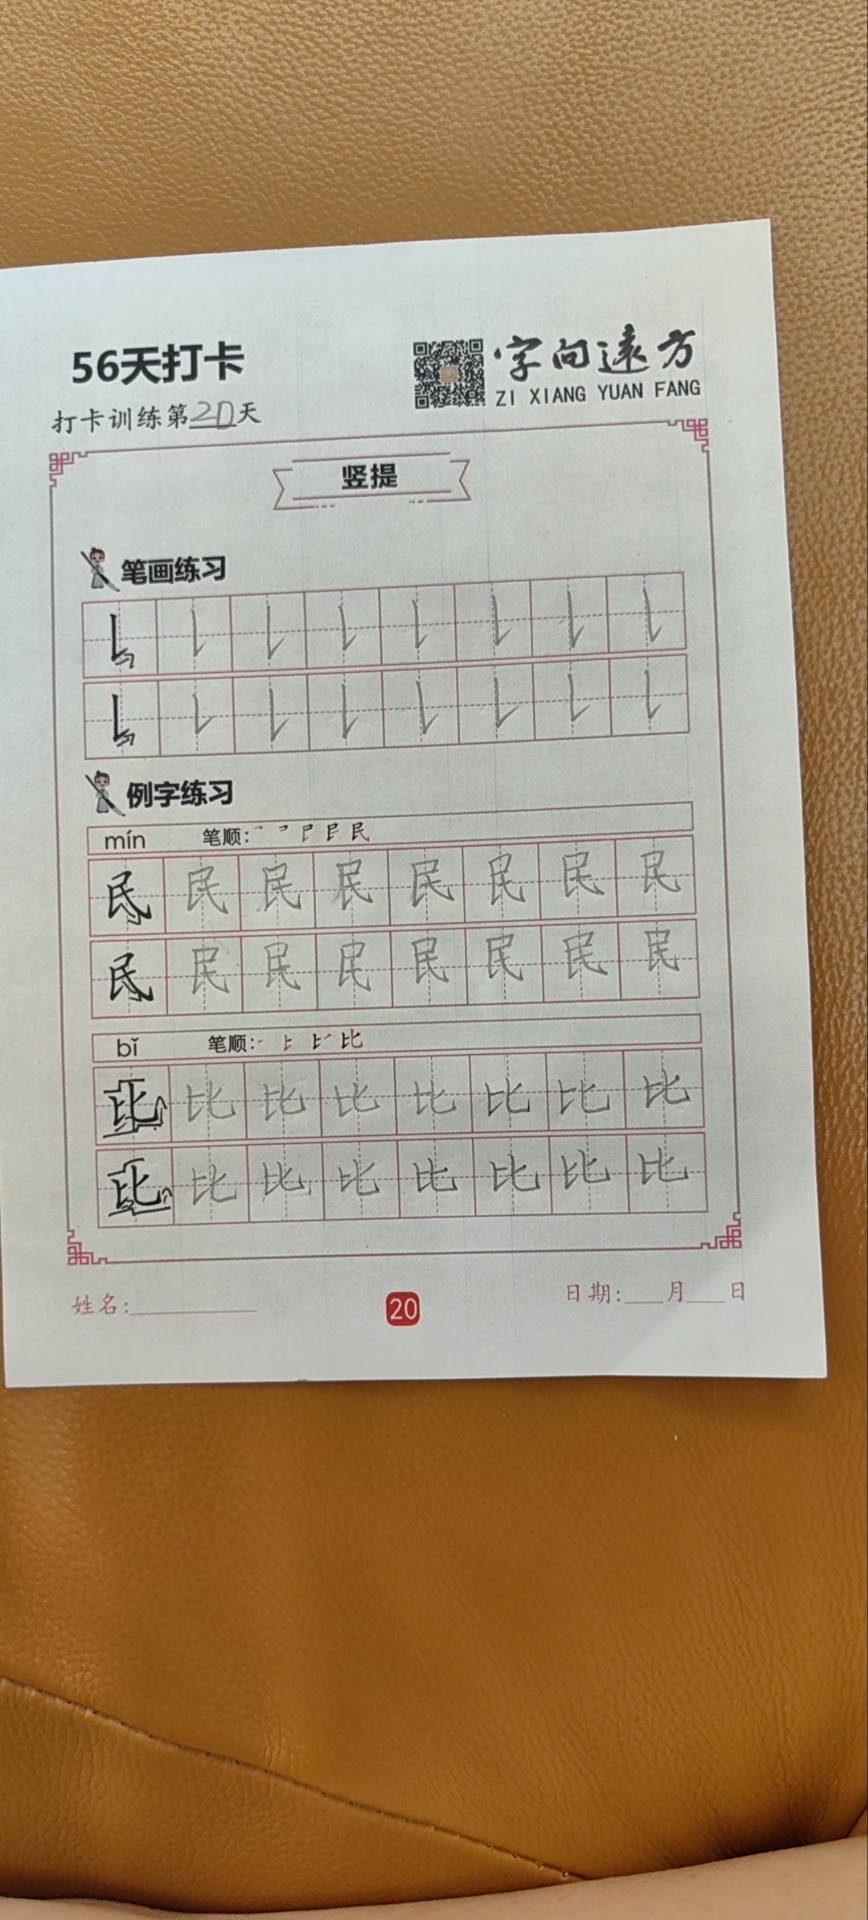 56天打卡
字向遠方
ZI XIANG YUAN FANG
打卡训练第20天
竖提
笔画练习
例字练习
mín 笔顺:
民 民 民 民 民 民 民 民
民 民 民 民 民 民 民 民
bǐ 笔顺:
比 比 比 比 比 比 比 比
比 比 比 比 比 比 比 比
姓名:
20
日期:___月___日